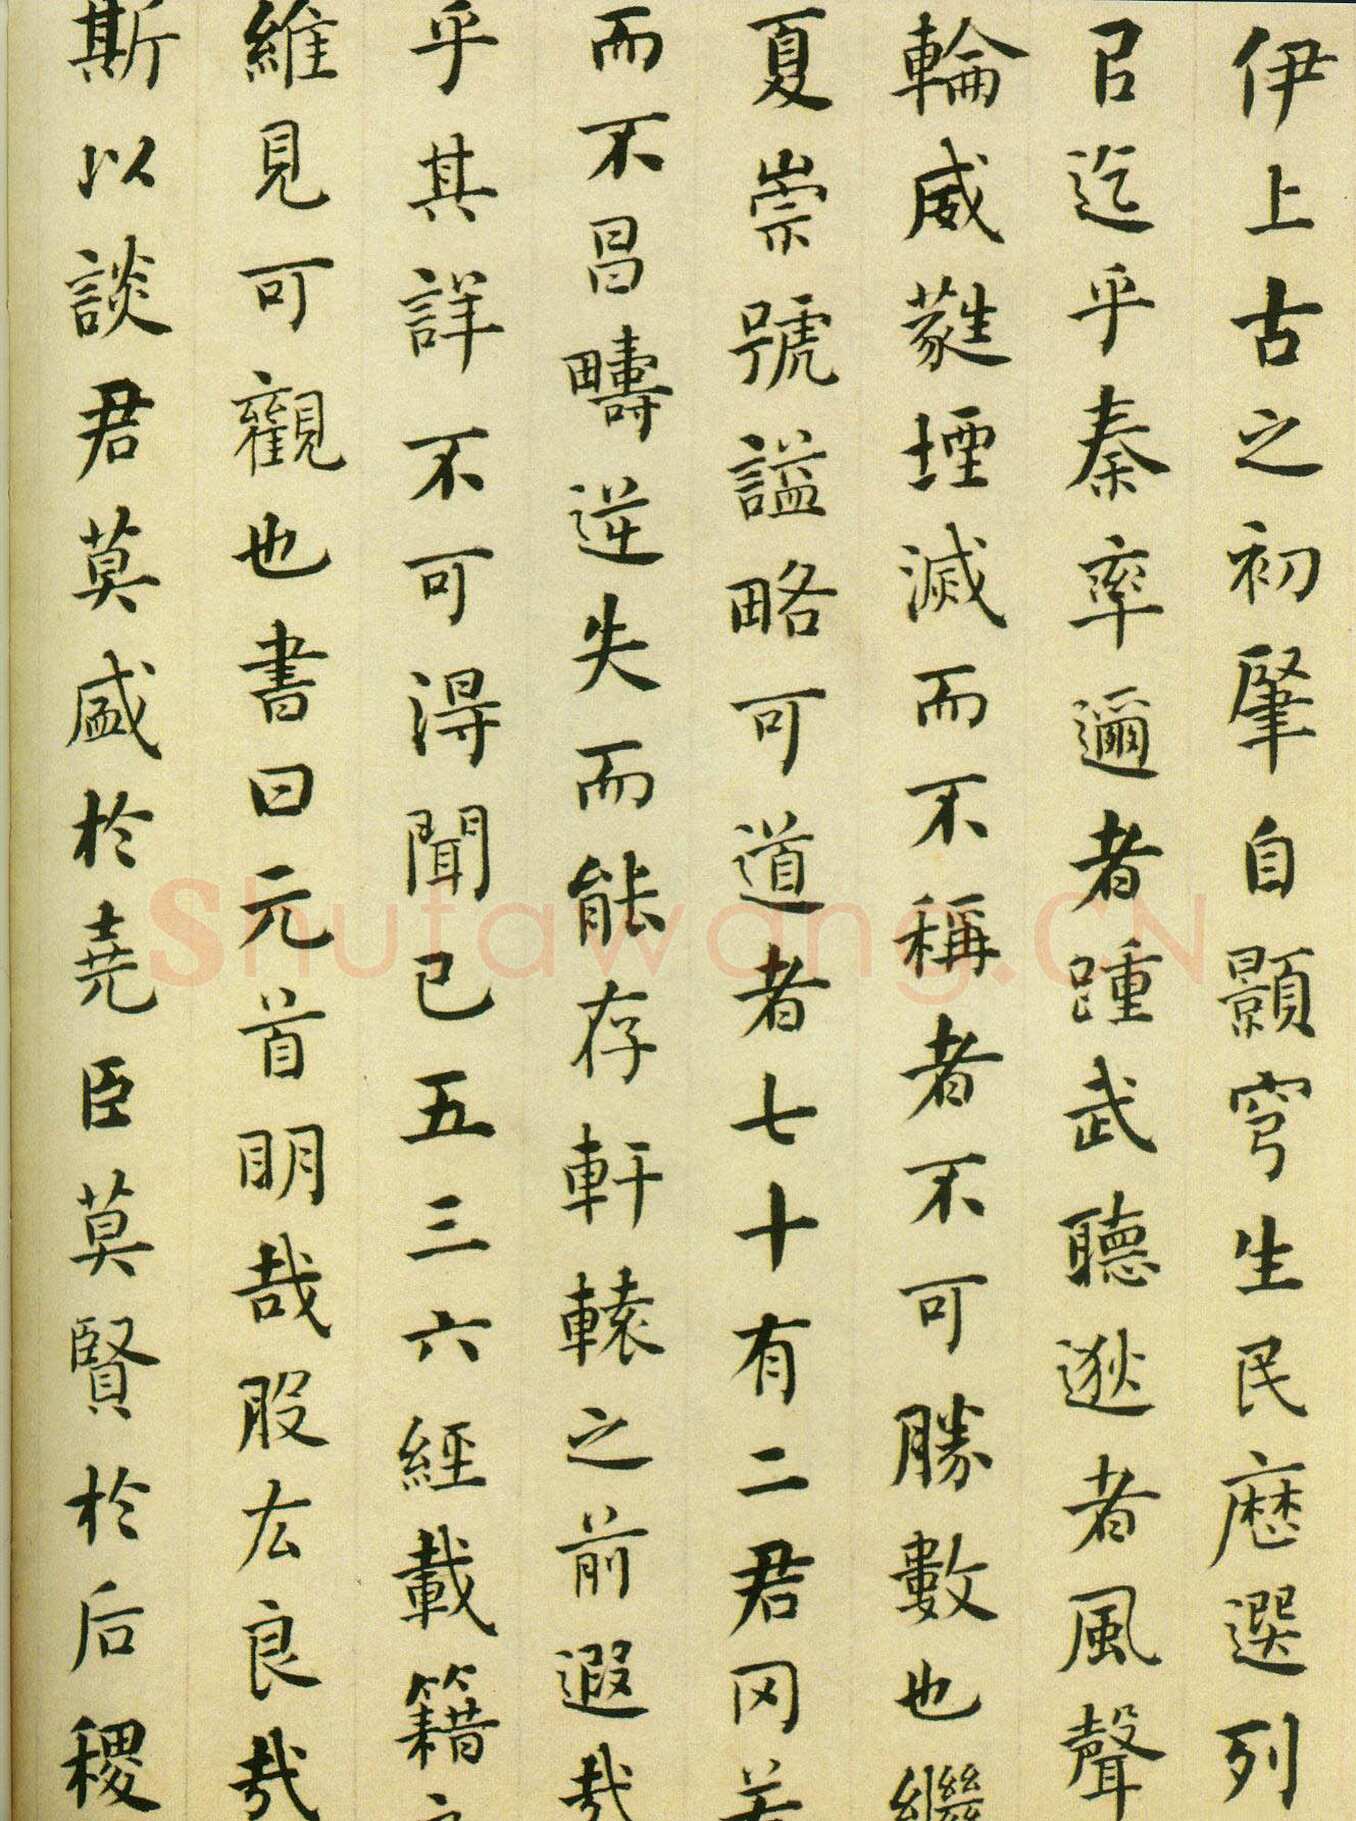 伊上古之初肈自顥穹生民歷選列
辟迄乎秦率邇者踵武聽逖者風聲
輪威蕤堙滅而不稱者不可勝數也繼
夏崇號謚略可道者七十有二君罔若
而不昌疇逆失而能存軒轅之前遐哉
乎其詳不可得聞已五三六經載籍
維見可觀也書曰元首明哉股肱良哉
斯以談君莫盛於堯臣莫賢於后稷
Shufawang.CN